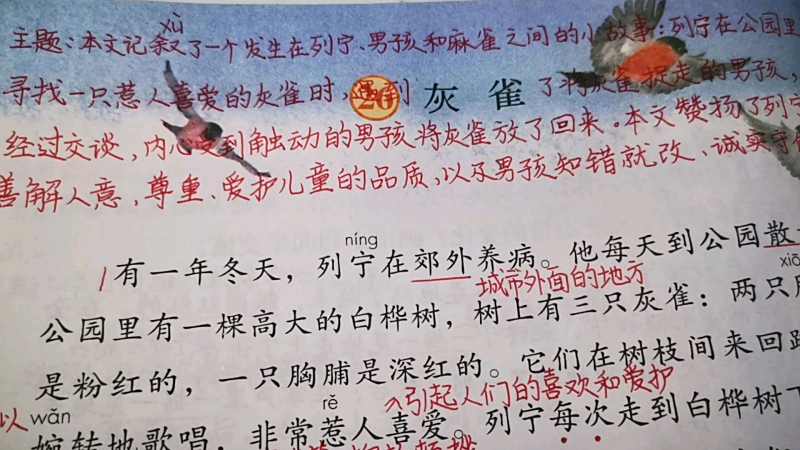 xù
主题:本文记叙了一个发生在列宁、男孩和麻雀之间的小故事:列宁在公园里
寻找一只惹人喜爱的灰雀时,遇到了将灰雀捉走的男孩,
26 灰雀
经过交谈,内心受到触动的男孩将灰雀放了回来。本文赞扬了列宁
善解人意,尊重、爱护儿童的品质,以及男孩知错就改、诚实守
níng
1有一年冬天,列宁在郊外养病。他每天到公园散
城市外面的地方
xiō
公园里有一棵高大的白桦树,树上有三只灰雀:两只
是粉红的,一只胸脯是深红的。它们在树枝间来回
引起人们的喜欢和爱护
以 wǎn rě
婉转地歌唱,非常惹人喜爱。列宁每次走到白桦树下